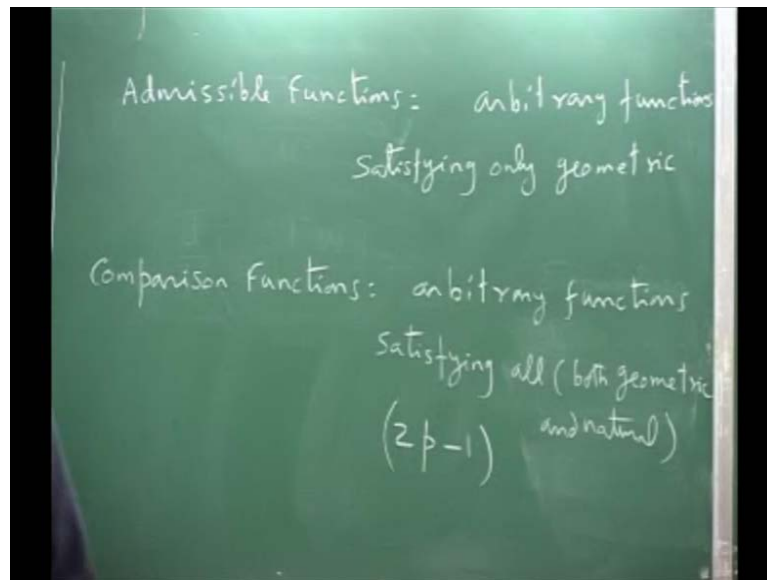 Admissible Functions: arbitrary functions
Satisfying only geometric
Comparison Functions: arbitrary functions
Satisfying all (both geometric
and natural)
(2p-1)